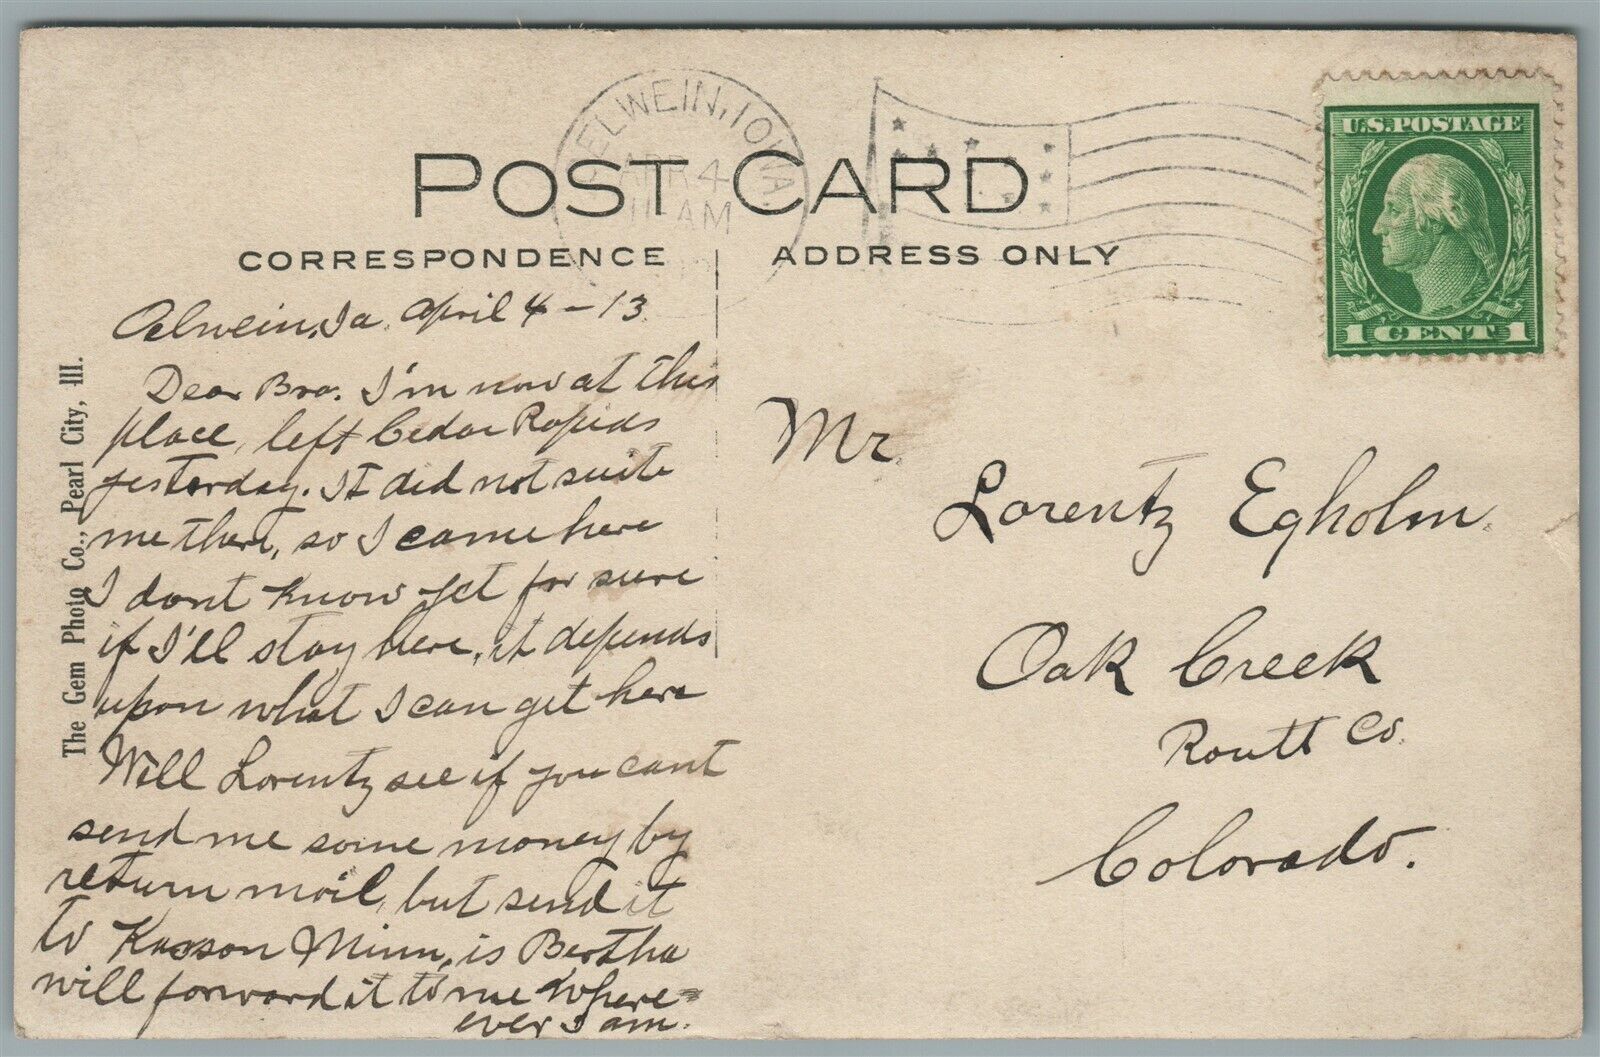 OELWEIN, IOWA.
APR 4
11-AM
U.S. POSTAGE
1 CENT 1
POST CARD
CORRESPONDENCE
ADDRESS ONLY
Oelwein, Ia. April 4 - 13
Dear Bro. I'm now at this
place, left Cedar Rapids
yesterday. It did not suite
me there, so I came here
I dont know yet for sure
if I'll stay here, it depends
upon what I can get here
Will Lorentz see if you cant
send me some money by
return mail, but send it
to Kasson Minn, is Bertha
will forward it to me where=
ever I am.
Mr.
Lorentz Egholm.
Oak Creek
Routt Co.
Colorado.
The Gem Photo Co., Pearl City, Ill.